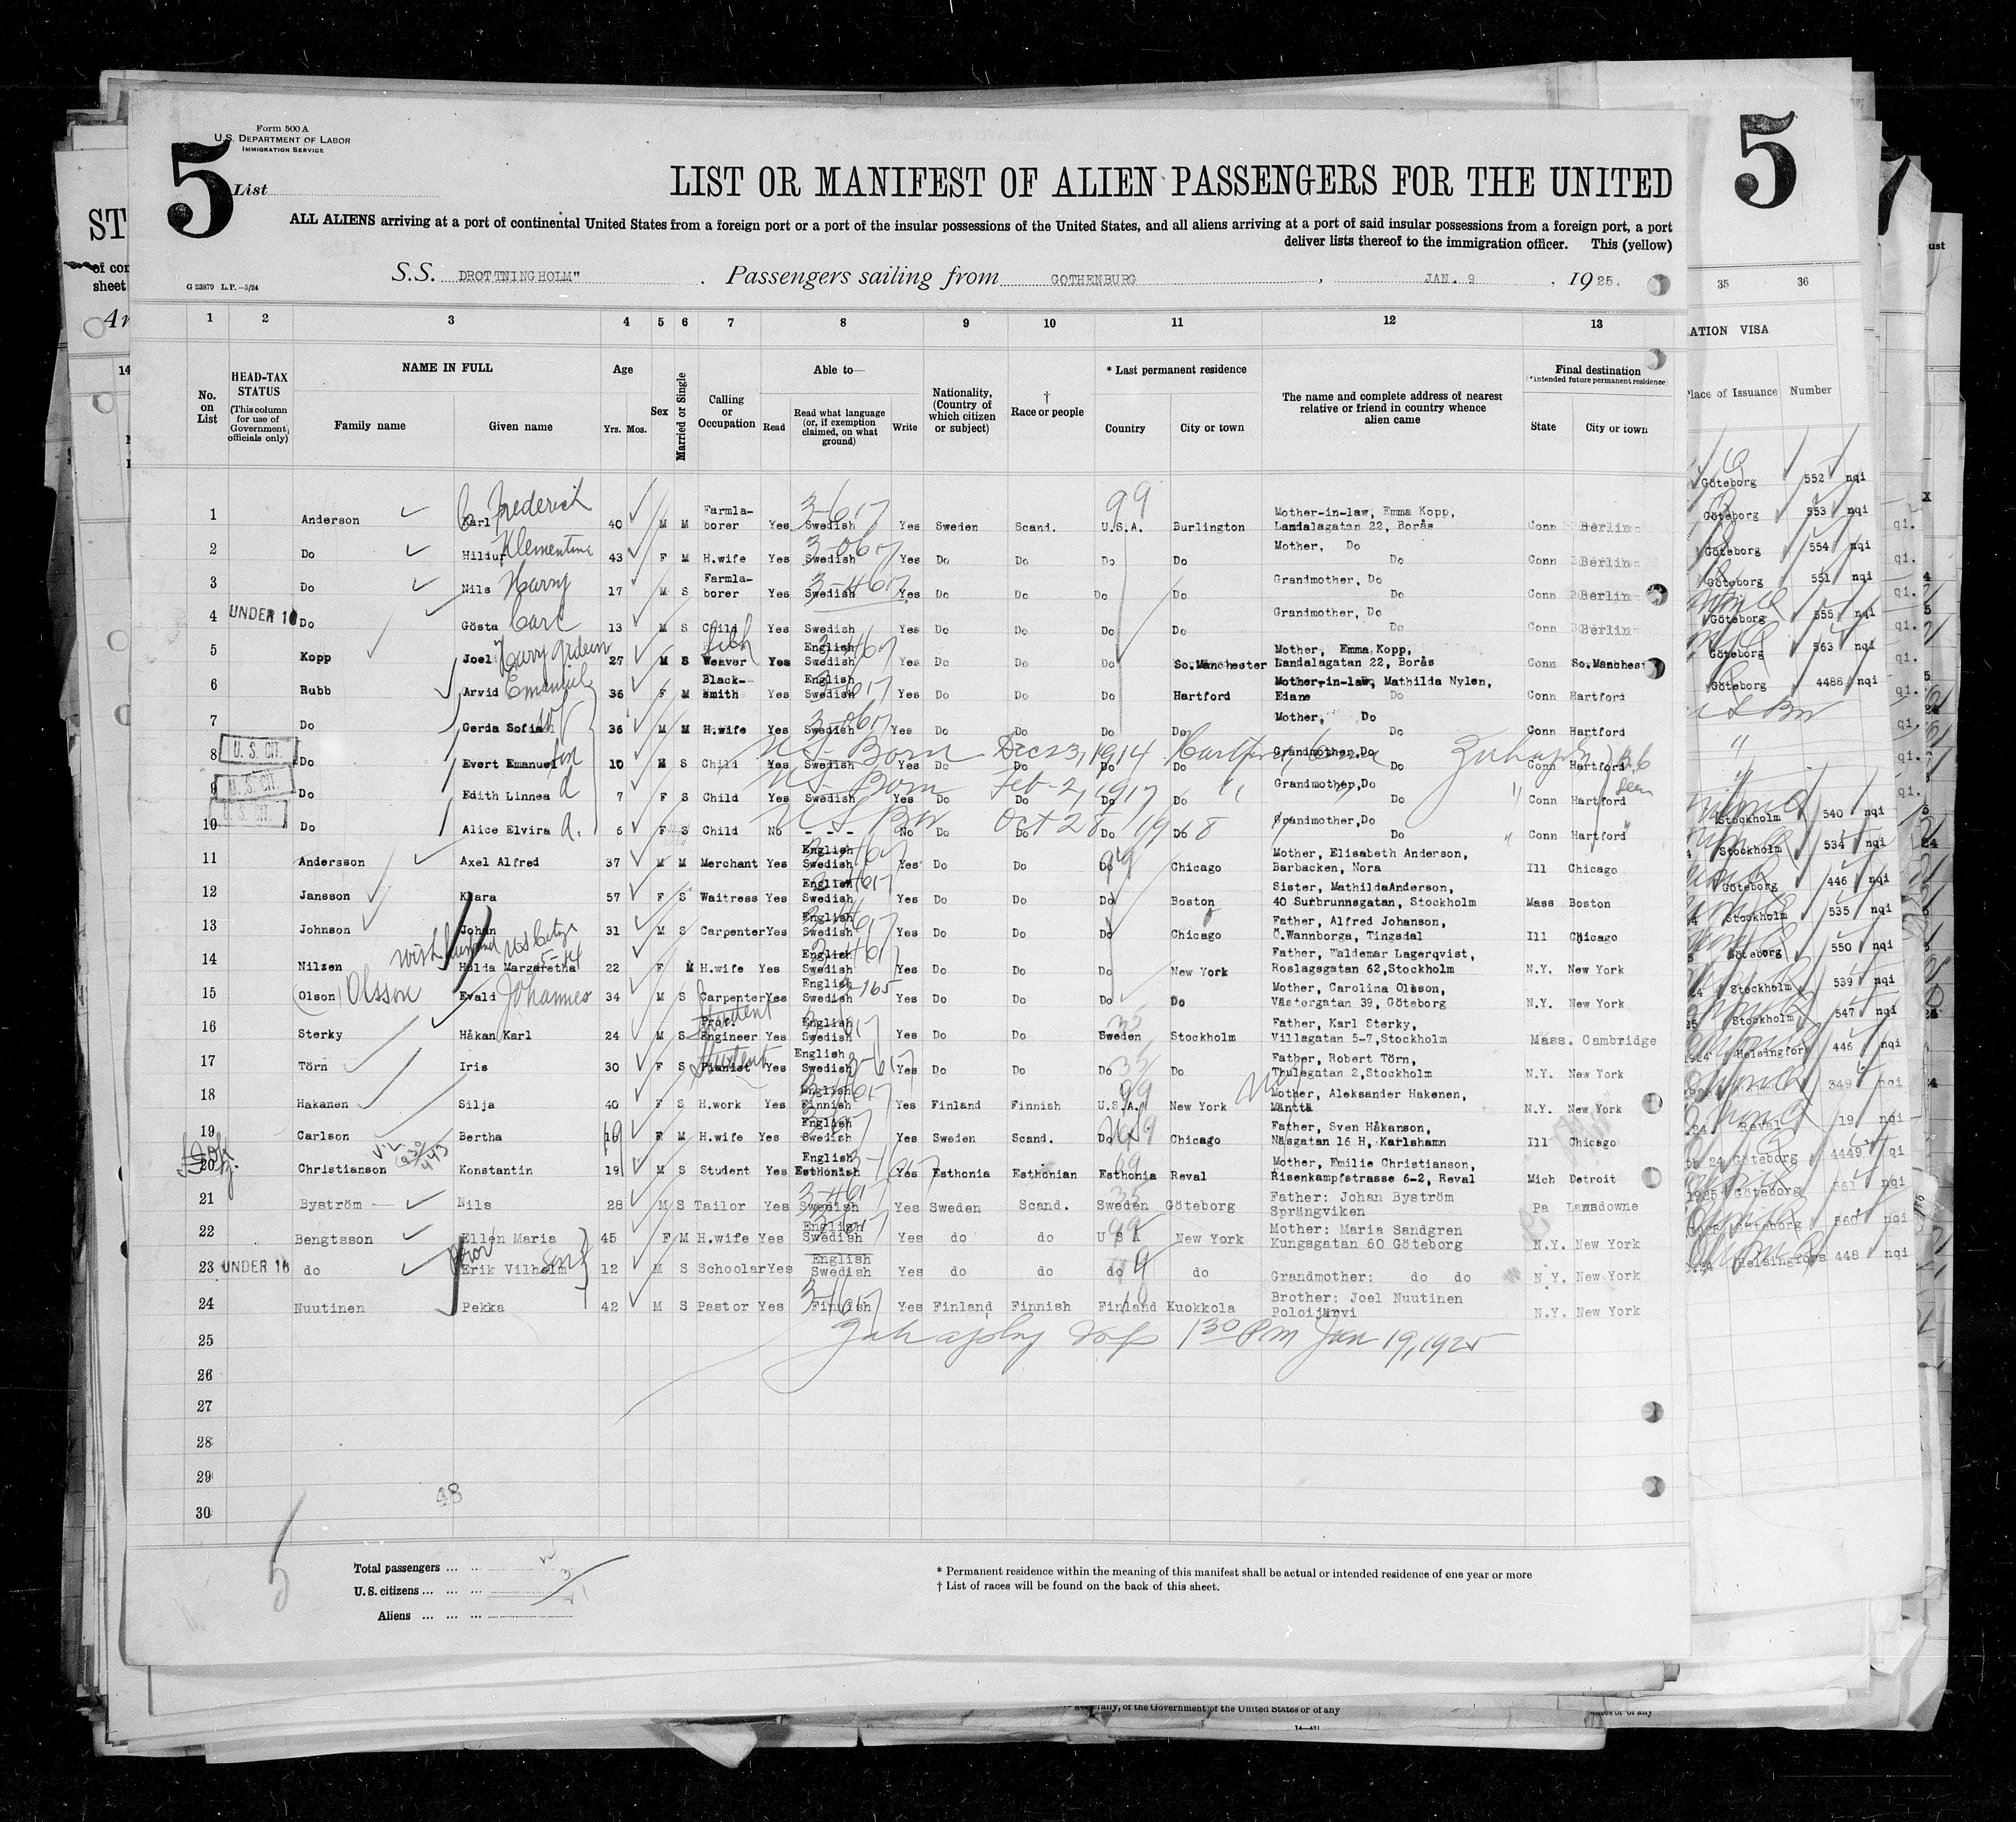 5
Form 500 A
U.S. DEPARTMENT OF LABOR
IMMIGRATION SERVICE
List
LIST OR MANIFEST OF ALIEN PASSENGERS FOR THE UNITED
ALL ALIENS arriving at a port of continental United States from a foreign port or a port of the insular possessions of the United States, and all aliens arriving at a port of said insular possessions from a foreign port, a port
deliver lists thereof to the immigration officer. This (yellow)
S.S. DROTTNINGHOLM" . Passengers sailing from GOTHENBURG , JAN. 9 , 1925.
G 23879 L.P.—5/24
1 2 3 4 5 6 7 8 9 10 11 12 13
No. on List
HEAD-TAX STATUS
(This column for use of Government officials only)
NAME IN FULL
Family name Given name
Age
Yrs. Mos.
Sex
Married or Single
Calling or Occupation
Able to—
Read
Read what language (or, if exemption claimed, on what ground)
Write
Nationality, (Country of which citizen or subject)
† Race or people
* Last permanent residence
Country City or town
The name and complete address of nearest relative or friend in country whence alien came
Final destination
(*intended future permanent residence)
State City or town
1 Anderson Karl Frederick 40 M M Farmla-borer Yes Swedish Yes Sweden Scand. U.S.A. Burlington Mother-in-law, Emma Kopp, Landalagatan 22, Borås Conn Berlin
2 Do Hildur Klementina 43 F M H.wife Yes Swedish Yes Do Do Do Do Mother, Do Do Conn Berlin
3 Do Nils Harry 17 M S Farmla-borer Yes Swedish Yes Do Do Do Do Grandmother, Do Do Conn Berlin
4 UNDER 16 Do Gösta Carl 13 M S Child Yes Swedish Yes Do Do Do Do Grandmother, Do Do Conn Berlin
5 Kopp Joel Harry Gideon 27 M S Weaver Yes English Swedish Yes Do Do Do So.Manchester Mother, Emma Kopp, Landalagatan 22, Borås Conn So.Manches
6 Rubb Arvid Emanuel 36 F M Black-smith Yes English Swedish Yes Do Do Do Hartford Mother-in-law, Mathilda Nylen, Edane Do Conn Hartford
7 Do Gerda Sofia wf 36 M M H.wife Yes Swedish Yes Do Do Do Do Mother, Do Conn Hartford
U. S. CIT.
8 Do Evert Emanuel son 10 M S Child Yes Swedish Yes Do Do Do Do Grandmother, Do Do Conn Hartford
US Born Dec 23, 1914 Hartford, Conn
U. S. CIT.
9 Do Edith Linnea d 7 F S Child Yes Swedish Yes Do Do Do Do Grandmother, Do Do Conn Hartford
US Born Feb-2, 1917
U. S. CIT.
10 Do Alice Elvira d. 6 F S Child No - - - No Do Do Do Do Grandmother, Do Do Conn Hartford
US Bn Oct 28 1918
11 Andersson Axel Alfred 37 M M Merchant Yes English Swedish Yes Do Do Do Chicago Mother, Elisabeth Anderson, Barbacken, Nora Ill Chicago
12 Jansson Klara 57 F S Waitress Yes English Swedish Yes Do Do Do Boston Sister, MathildaAnderson, 40 Surbrunnsgatan, Stockholm Mass Boston
13 Johnson Johan 31 M S Carpenter Yes English Swedish Yes Do Do Do Chicago Father, Alfred Johanson, Ö.Wannborga, Tingsdal Ill Chicago
with husband US Citizen
14 Nilzen Hulda Margaretha 22 F M H.wife Yes English Swedish Yes Do Do Do New York Father, Waldemar Lagerqvist, Roslagsgatan 62,Stockholm N.Y. New York
15 (Olson) Olsson Evald Johannes 34 M S Carpenter Yes English Swedish Yes Do Do Do Do Mother, Carolina Olsson, Västergatan 39, Göteborg N.Y. New York
16 Sterky Håkan Karl 24 M S Student Engineer Yes English Swedish Yes Do Do Sweden Stockholm Father, Karl Sterky, Villagatan 5-7,Stockholm Mass. Cambridge
17 Törn Iris 30 F S Student Pianist Yes English Swedish Yes Do Do Do Do Father, Robert Törn, Thulegatan 2,Stockholm N.Y. New York
18 Hakanen Silja 40 F S H.work Yes English Finnish Yes Finland Finnish U.S.A. New York Mother, Aleksander Hakenen, Mänttä N.Y. New York
19 Carlson Bertha 19 F M H.wife Yes English Swedish Yes Sweden Scand. Do Chicago Father, Sven Håkanson, Näsgatan 16 H, Karlshamn Ill Chicago
20 Christianson Konstantin 19 M S Student Yes English Esthonish Yes Esthonia Esthonian Esthonia Reval Mother, Emilie Christianson, Risenkampfstrasse 6-2, Reval Mich Detroit
21 Byström Nils 28 M S Tailor Yes Swedish Yes Sweden Scand. Sweden Göteborg Father: Johan Byström Sprängviken Pa Lansdowne
22 Bengtsson Ellen Maria 45 F M H.wife Yes English Swedish Yes do do U S A New York Mother: Maria Sandgren Kungsgatan 60 Göteborg N.Y. New York
23 UNDER 16 do Erik Vilhelm son 12 M S Schoolar Yes English Swedish Yes do do do do Grandmother: do do N Y. New York
24 Nuutinen Pekka 42 M S Pastor Yes Finnish Yes Finland Finnish Finland Kuokkola Brother: Joel Nuutinen Poloijärvi N.Y. New York
25 1 30 PM Jan 19, 1925
26
27
28
29
30
48
Total passengers
U.S. citizens 3
Aliens 21
* Permanent residence within the meaning of this manifest shall be actual or intended residence of one year or more
† List of races will be found on the back of this sheet.
5
35 36
ATION VISA
Place of Issuance Number
Göteborg 552 nqi
Göteborg 553 nqi
Göteborg 554 nqi
Göteborg 551 nqi
Göteborg 555 nqi
Göteborg 563 nqi
Göteborg 4488 nqi
US Bn
"
"
Stockholm 540 nqi
Stockholm 534 nqi
Göteborg 446 nqi
Stockholm 535 nqi
Göteborg 550 nqi
Stockholm 539 nqi
Stockholm 547 nqi
Helsingfors 446 nqi
349 nqi
Reval 19 nqi
Göteborg 4449 qi
Göteborg 561 nqi
Göteborg 560 nqi
Helsingfors 448 nqi
ST
of cor
sheet
Ar
14
erally, of the Government of the United States or of any
14—431